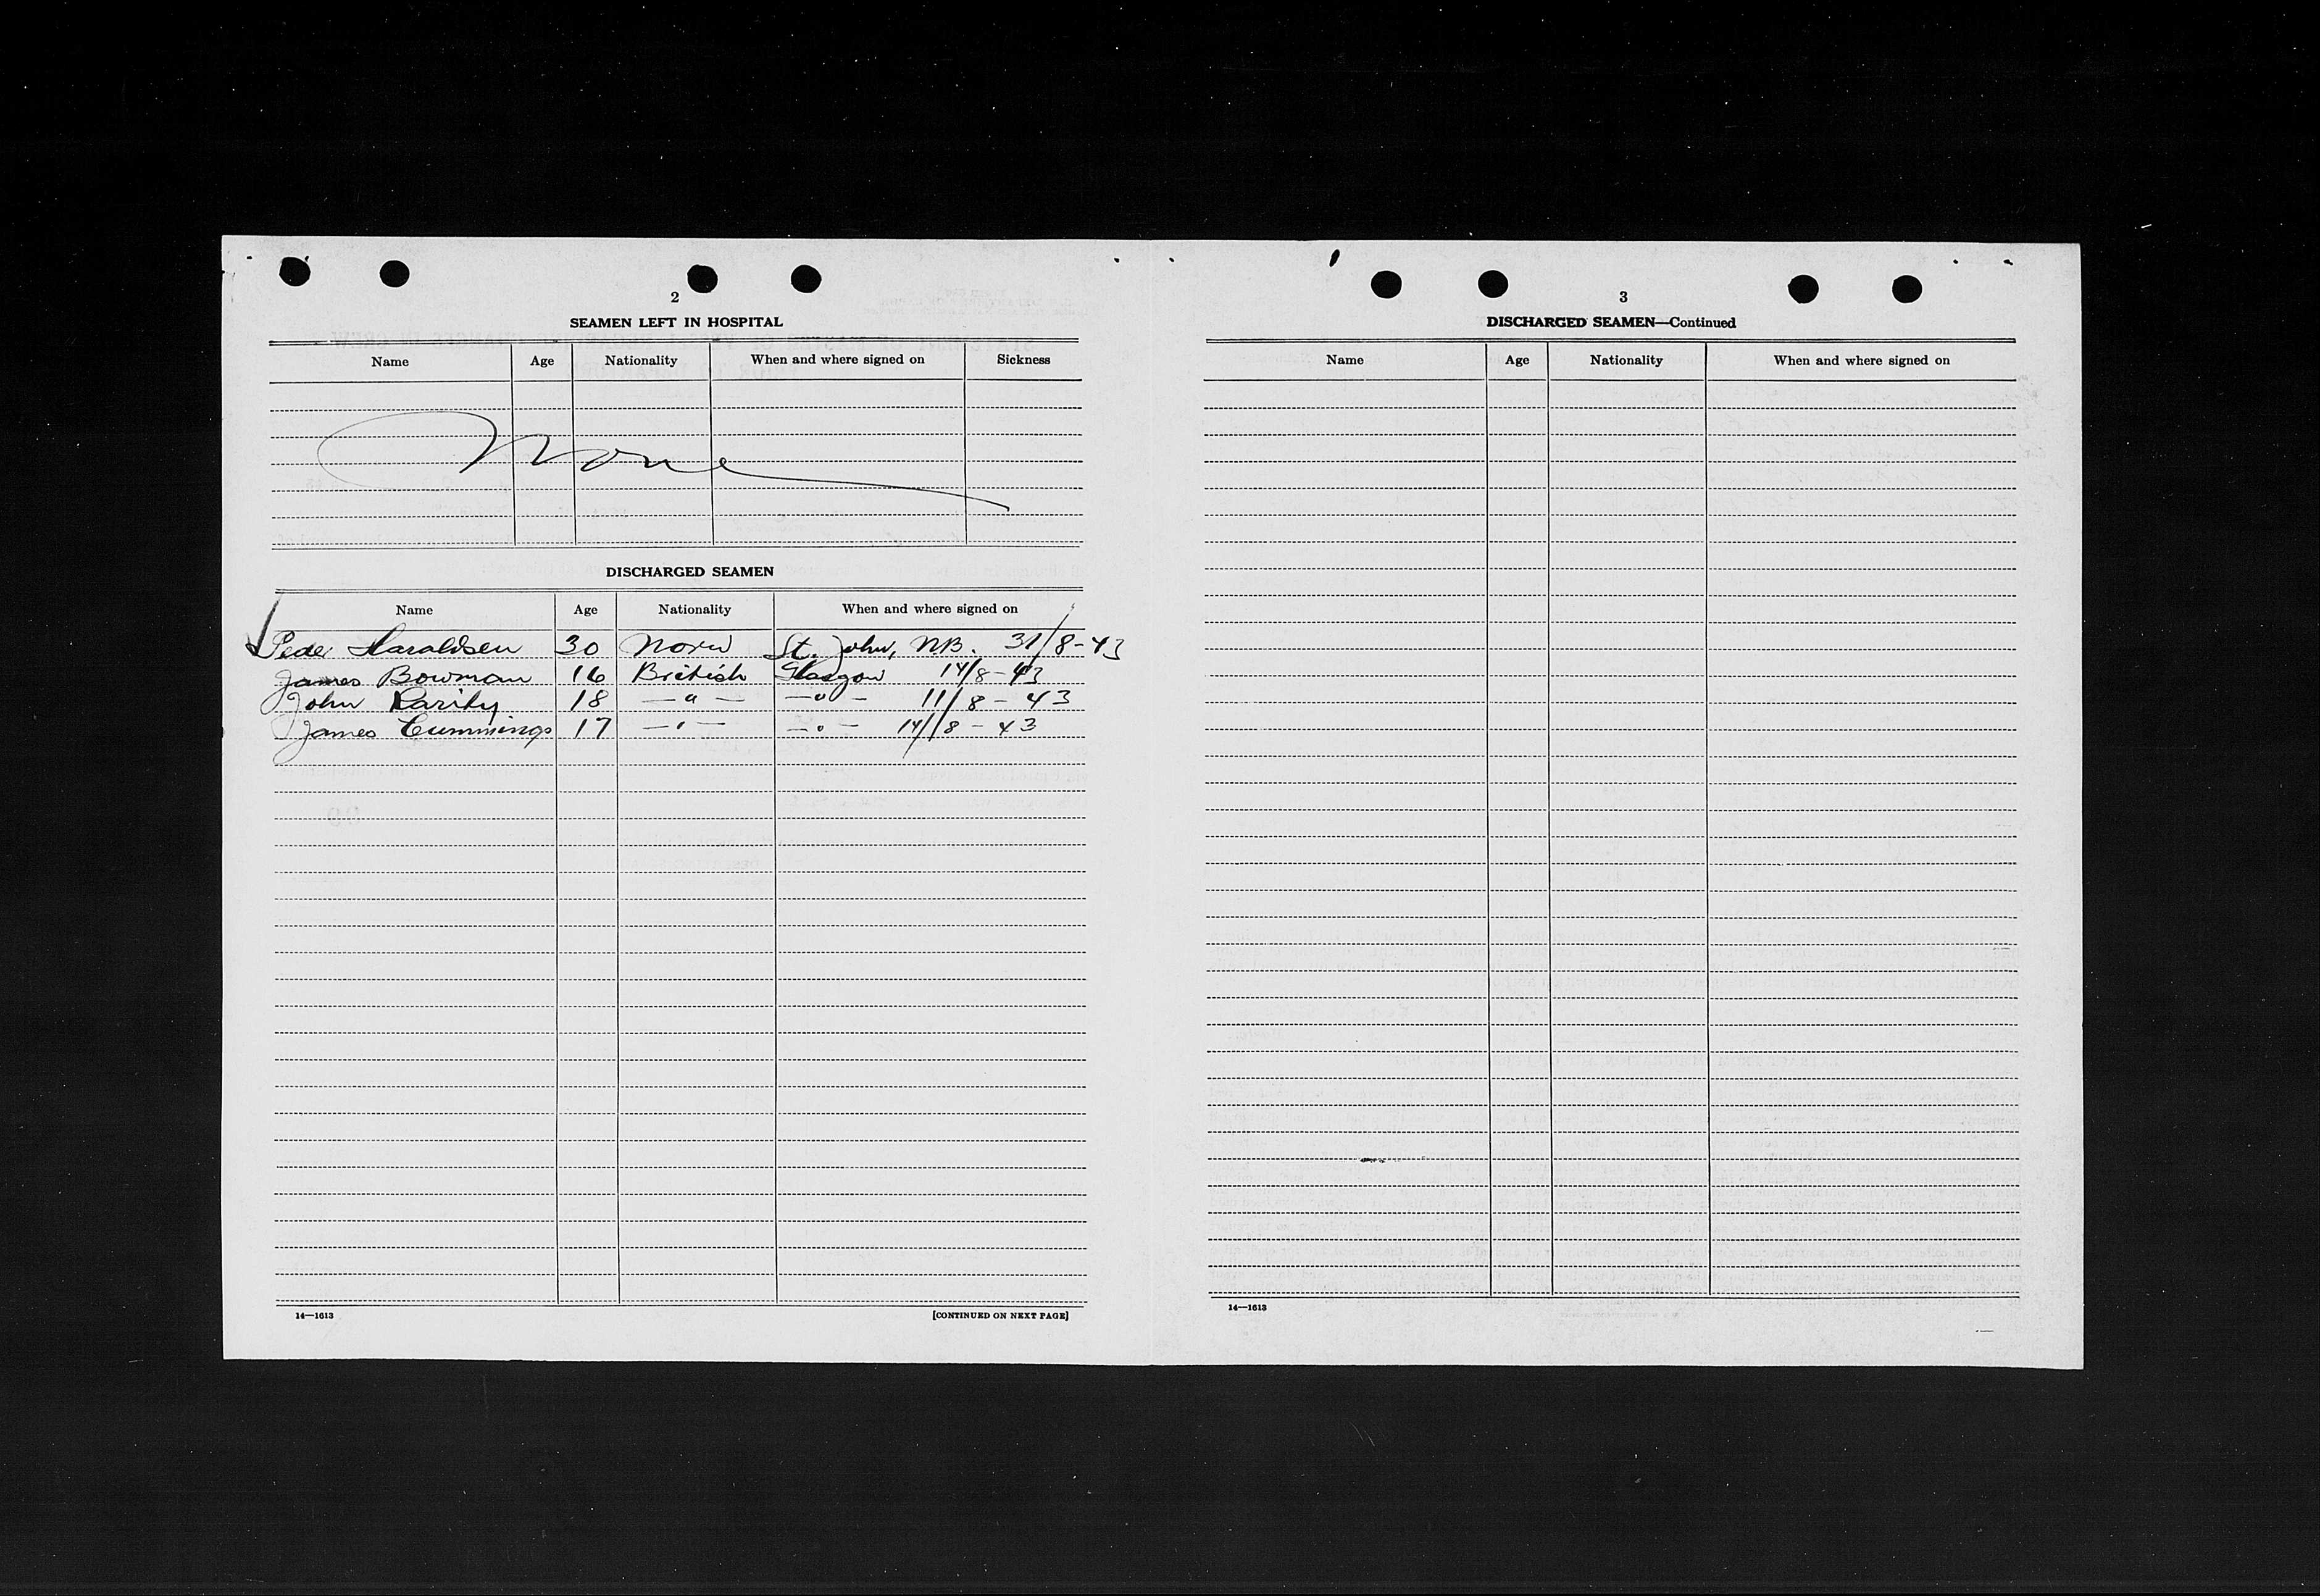 2
SEAMEN LEFT IN HOSPITAL
Name Age Nationality When and where signed on Sickness
None
DISCHARGED SEAMEN
Name Age Nationality When and where signed on
Peder Haraldsen 30 Norw St. John, NB. 31/8-43
James Bowman 16 British Glasgow 14/8-43
John Rarity 18 —"— —"— 11/8-43
James Cummings 17 —"— —"— 14/8-43
14—1613 [CONTINUED ON NEXT PAGE]
3
DISCHARGED SEAMEN—Continued
Name Age Nationality When and where signed on
14—1613